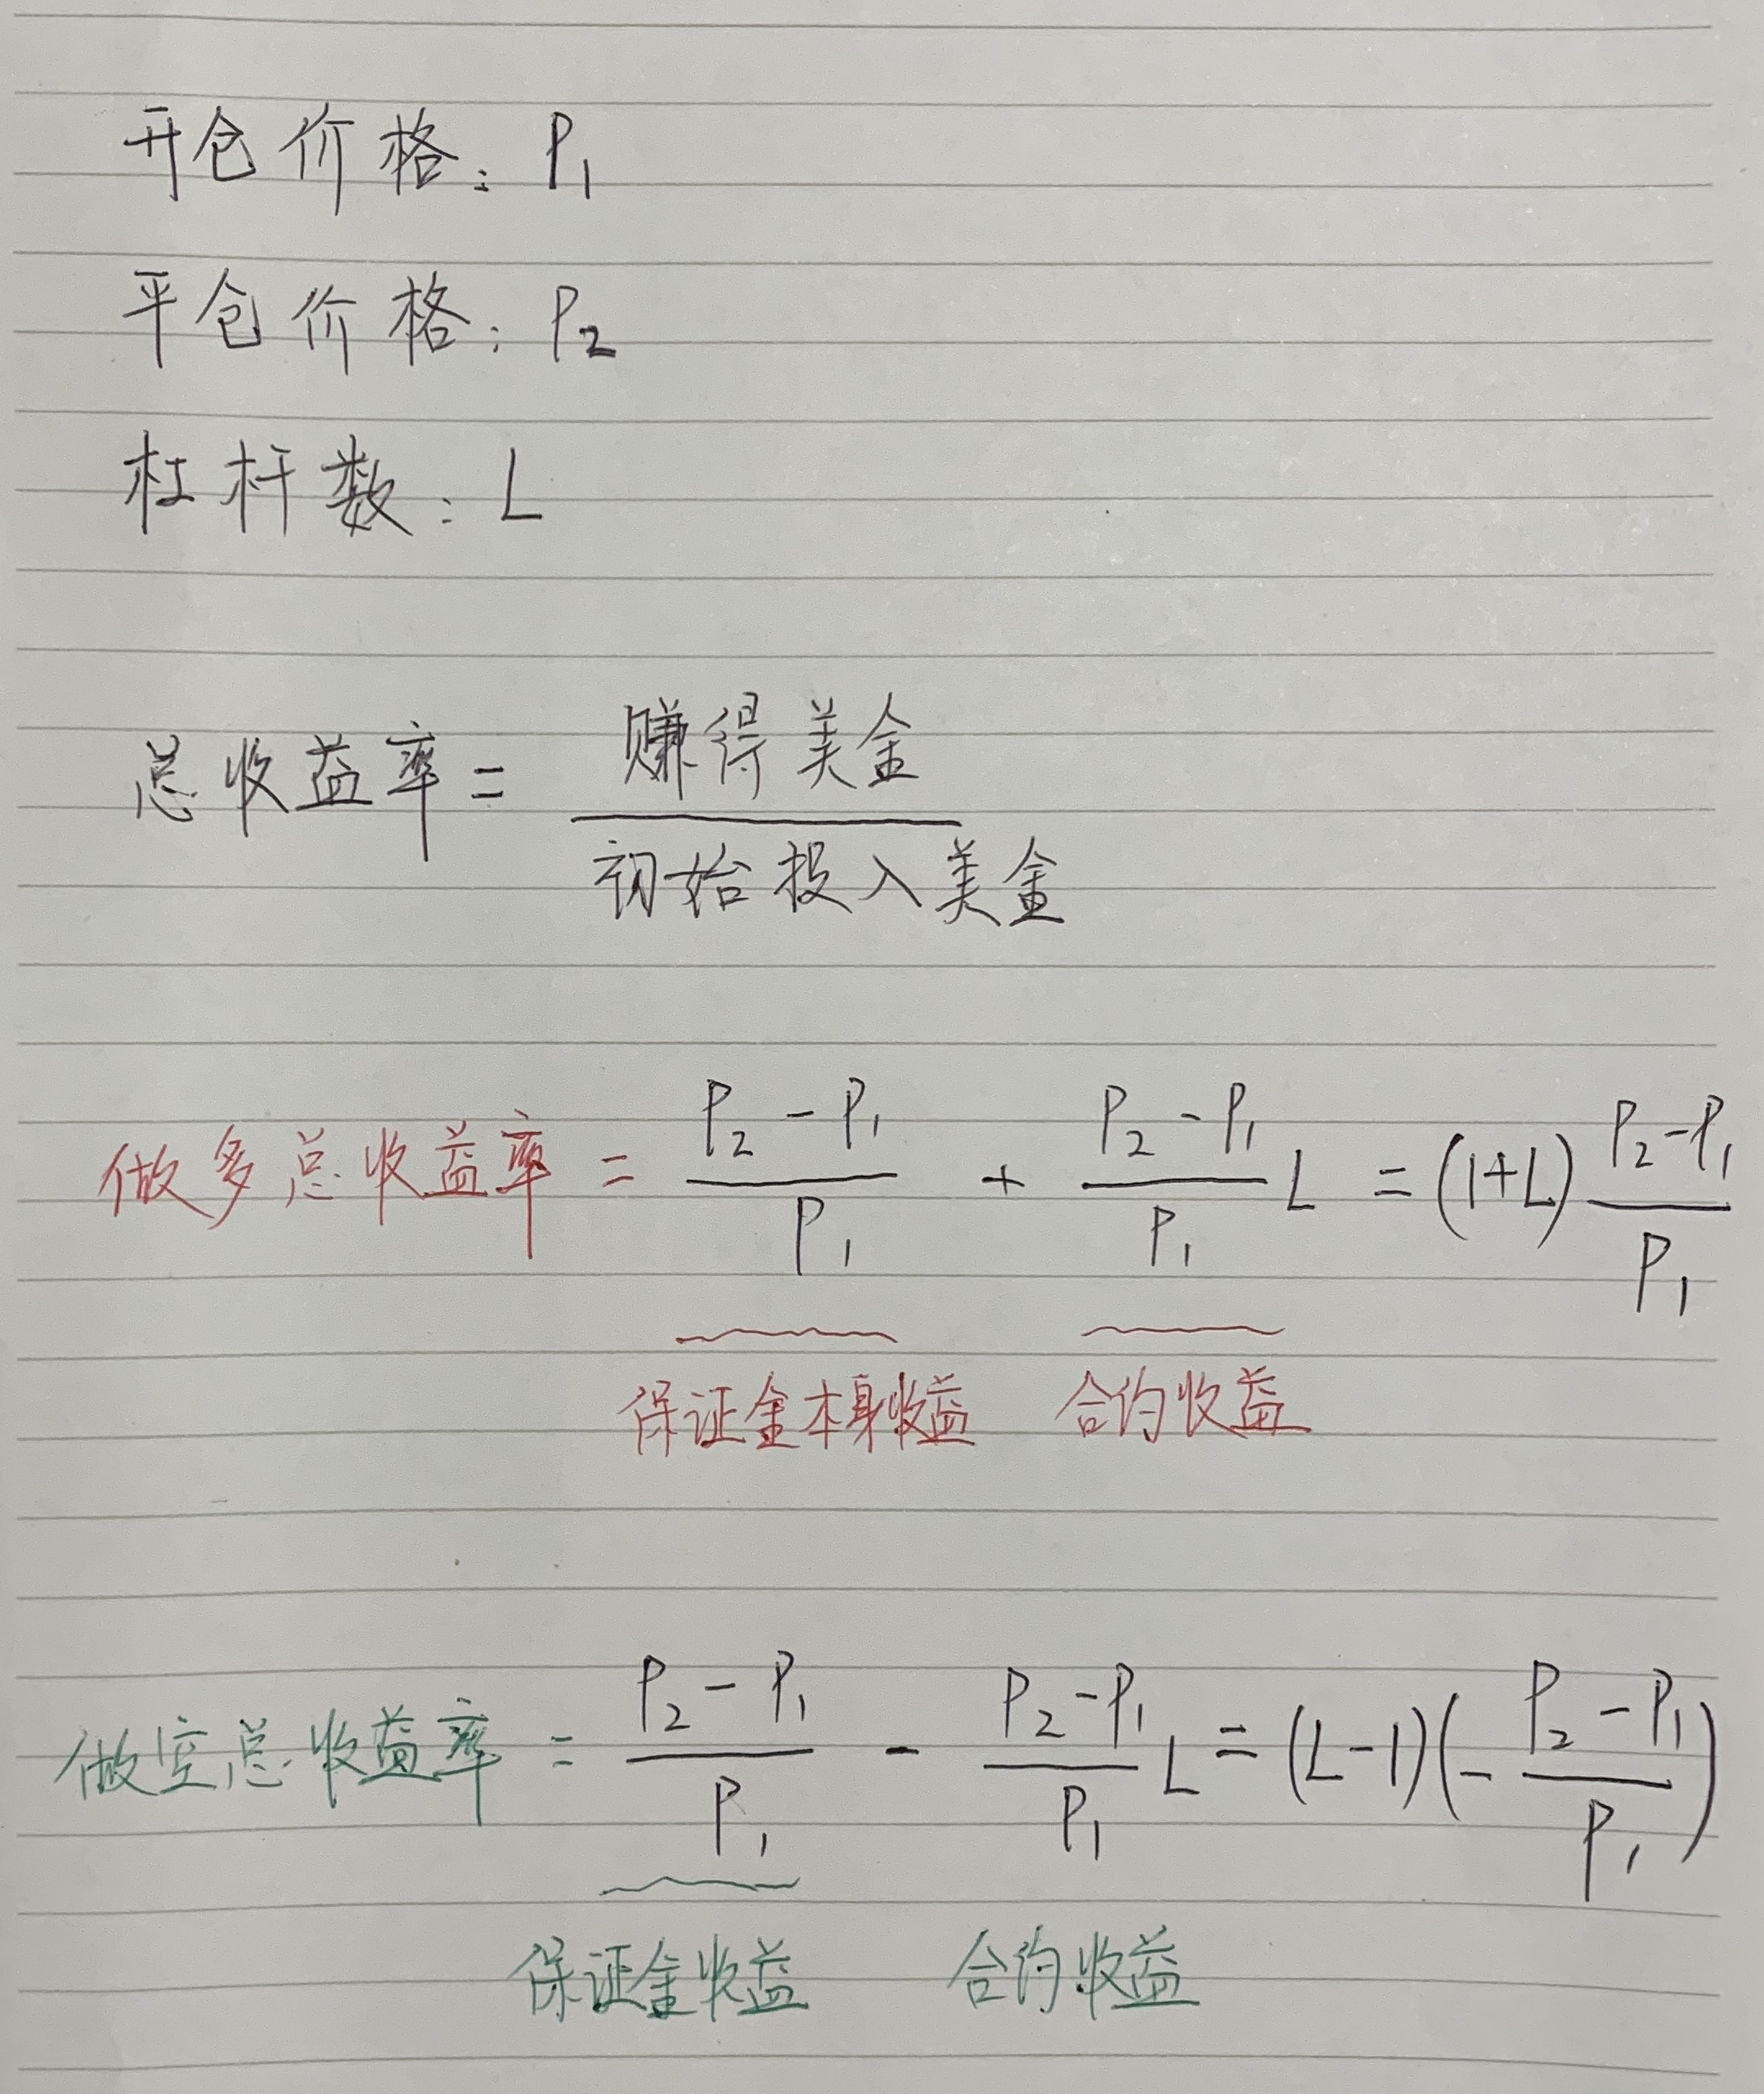 开仓价格: P₁
平仓价格: P₂
杠杆数: L
总收益率 = 赚得美金 / 初始投入美金
做多总收益率 = (P₂ - P₁)/P₁ + (P₂ - P₁)/P₁ L = (1+L) (P₂-P₁)/P₁
保证金本身收益 合约收益
做空总收益率 = (P₂ - P₁)/P₁ - (P₂-P₁)/P₁ L = (L-1)(- (P₂-P₁)/P₁)
保证金收益 合约收益